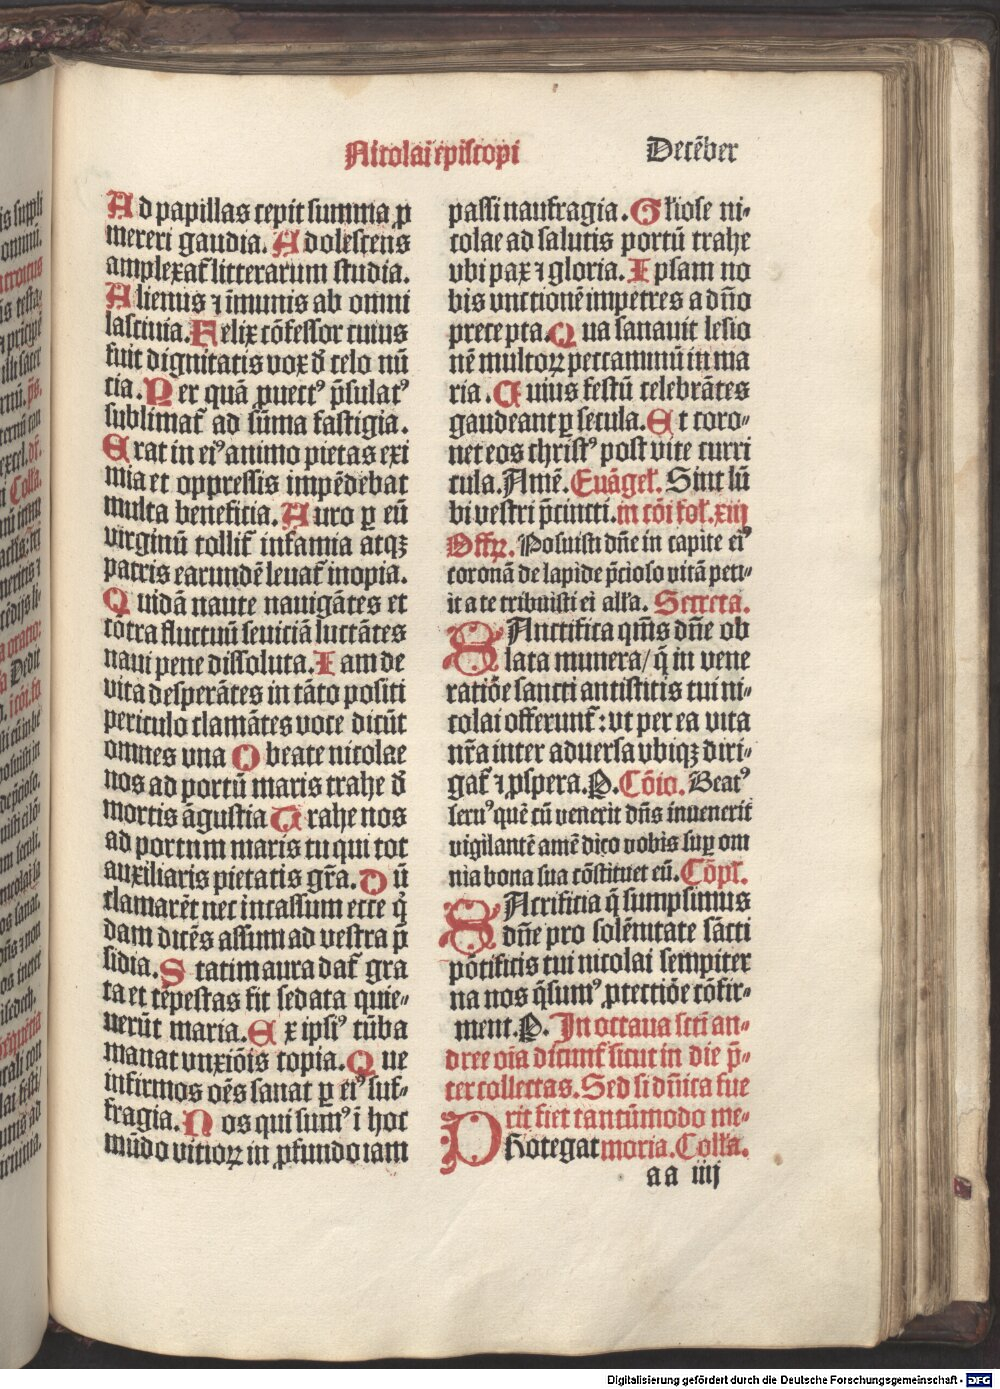 Nicolai episcopi
Decēber
Ad papillas cepit summa ꝓ
mereri gaudia. Adolescens
amplexat᷑ litterarum studia.
Alienus ⁊ imunis ab omni
lasciuia. Felix cōfessor cuius
fuit dignitatis vox d̄ celo nū
cia. Per quā ꝓuectꝰ p̄sulatꝰ
sublimat᷑ ad sūma fastigia.
Erat in eiꝰ animo pietas exi
mia et oppressis impēdebat
multa beneficia. Auro ꝑ eū
virginū tollit᷑ infamia atqꝫ
patris earundē leuat᷑ inopia.
Quidā naute nauigātes et
cōtra fluctuū seuiciā luctātes
naui pene dissoluta. Iam de
vita desperātes in tāto positi
periculo clamātes voce dicūt
omnes vna O beate nicolae
nos ad portū maris trahe d̄
mortis āgustia Trahe nos
ad portum maris tu qui tot
auxiliaris pietatis gr̄a. Dū
clamarēt nec incassum ecce q̇
dam dicēs assum ad vestra p̄
sidia. Statim aura dat᷑ gra
ta et tēpestas fit sedata quie⸗
uerūt maria. Ex ipsiꝰ tūba
manat vnxiōis copia. Que
infirmos oēs sanat ꝑ eiꝰ suf⸗
fragia. Nos qui sumꝰ ī hoc
mūdo vitioꝝ in ꝓfundo iam
passi naufragia. Gl̄iose ni⸗
colae ad salutis portū trahe
vbi pax ⁊ gloria. Ipsam no
bis vnctionē impetres ad dn̄o
prece pta. Qua sanauit lesio
nē multoꝝ peccaminū in ma
ria. Cuius festū celebrātes
gaudeant ꝑ secula. Et coro⸗
net eos christꝰ post vite curri
cula. Amē. Euāgel̄. Sint lū
bi vestri p̄cincti. in cōi fol̄. xiij
Offꝝ. Posuisti dn̄e in capite eiꝰ
coronā de lapide p̄cioso vitā peti⸗
it a te tribuisti ei all̄a. Secreta.
SAnctifica qm̄s dn̄e ob
lata munera/ q̄ in vene
ratiōe sancti antistitis tui ni⸗
colai offerunt᷑: vt per ea vita
nr̄a inter aduersa vbiqꝫ diri⸗
gat᷑ ⁊ ꝓspera. P. Cōio. Beatꝰ
seruꝰ quē cū venerit dn̄s inuenerit
vigilantē amē dico vobis suꝑ om
nia bona sua cōstituet eū. Cōpl̄.
SAcrificia q̄ sumpsimus
dn̄e pro solēnitate sācti
pōtificis tui nicolai sempiter
na nos q̄sumꝰ ꝓtectiōe cōfir⸗
ment. P. In octaua scti an⸗
dree oīa dicunt᷑ sicut in die p̄⸗
ter collectas. Sed si dn̄ica fue
rit fiet tantūmodo me⸗
PRotegat moria. Coll̄a.
aa iiij
Digitalisierung gefördert durch die Deutsche Forschungsgemeinschaft - DFG